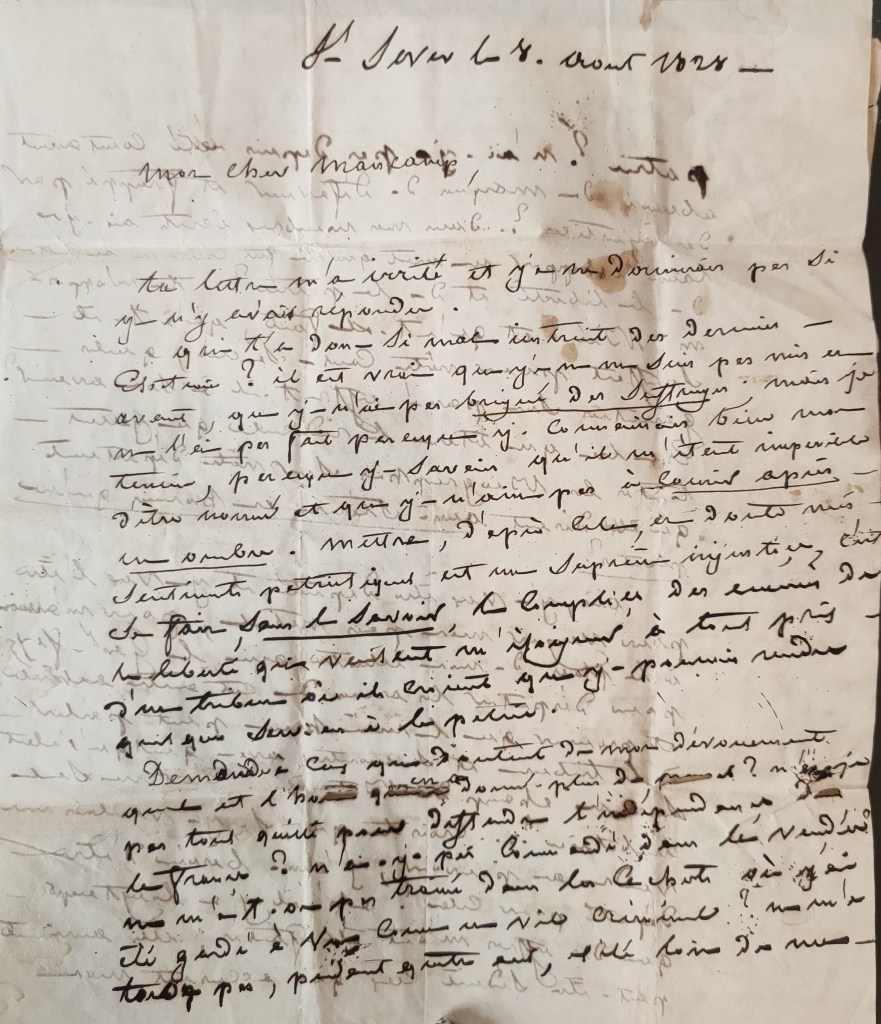 St Sever le 8. aout 1828 —
Mon cher
ta lettre m'a irrité et j'e ne dormirais pas si
j'e n'y avais répondu.
qui t'a donc si mal instruit des dernières —
Élections ? il est vrai que j'e ne me suis pas mis en
avant, que j'e n'ai pas brigué des suffrages. mais je
ne l'ai pas fait parceque j'y. connaissais bien mon
terrein, parceque j'e savais qu'il m'était impossible
d'être nommé et que j'e n'aime pas à courir après —
un ombre. mettre, d'après cela, en doute mes
sentiments patriotiques est une suprême injustice, c'est
se faire, sans le savoir, le complice des ennemis de
la liberté qui veulent m'éloigner, à tout prix —
d'une tribune où ils croient que j'e pourrais rendre
quelques services à la patrie.
Demandes à ceux qui doutent de mon dévouement
quel est l'homme qui en a donné plus de ? n'ai je
pas tout quitté pour deffendre l'indépendance de
la france ? n'ai-je pas comandé dans la vendée ?
ne m'a-t-on pas trainé dans les cachots où j'ai
été gardé à vue comme un vil criminel ? ne m'a
pas, pendant quatre ans, exilé loin de ma —